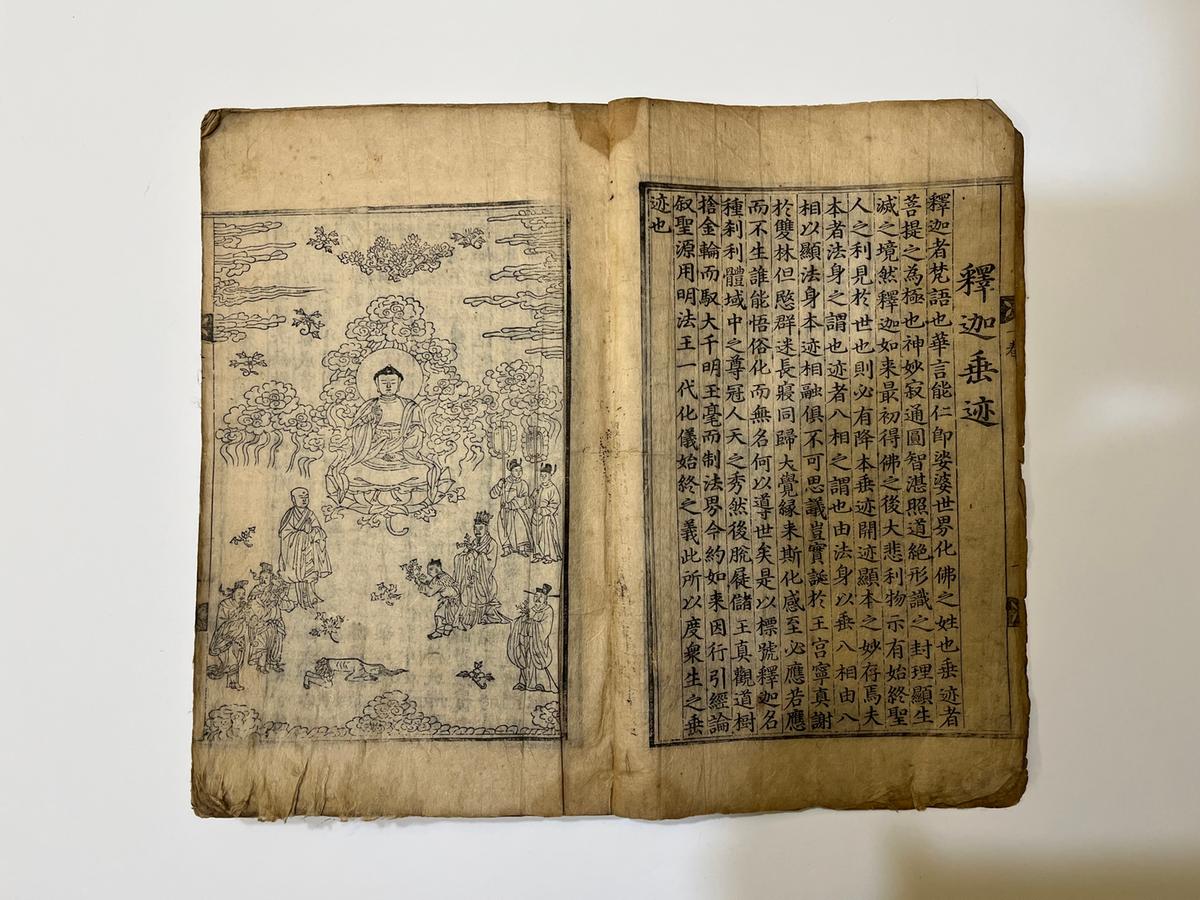 釋迦垂迹
釋迦者梵語也華言能仁即娑婆世界化佛之姓也垂迹者
菩提之為極也神妙寂通圓智湛照道絕形識之封理顯生
滅之境然釋迦如来最初得佛之後大悲利物示有始終聖
人之利見於世也則必有降本垂迹開迹顯本之妙存焉夫
本者法身之謂也迹者八相之謂也由法身以垂八相由八
相以顯法身本迹相融俱不可思議豈實誕於王宮寧真謝
於雙林但愍群迷長寢同歸大覺緣来斯化感至必應若應
而不生誰能悟俗化而無名何以導世矣是以標號釋迦名
種刹利體域中之尊冠人天之秀然後脫屣儲王真觀道樹
捨金輪而馭大千明玉毫而制法界今約如来因行引經論
叙聖源用明法王一代化儀始終之義此所以度衆生之垂
迹也
卷